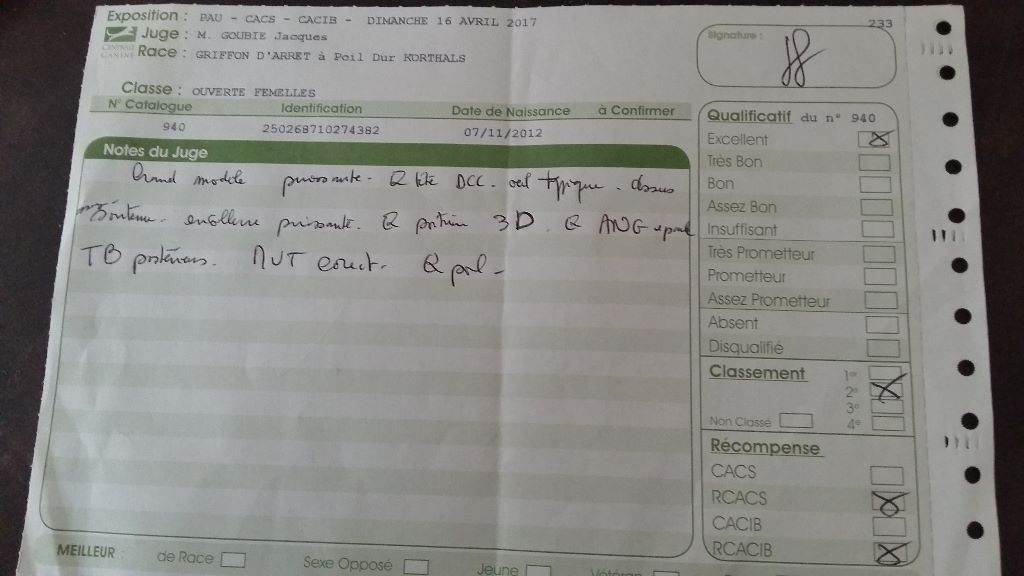 Exposition : PAU - CACS - CACIB - DIMANCHE 16 AVRIL 2017
233
Juge : M. GOUBIE Jacques
CENTRALE CANINE
Race : GRIFFON D'ARRET à Poil Dur KORTHALS
Signature :
Classe : OUVERTE FEMELLES
N° Catalogue Identification Date de Naissance à Confirmer
940 250268710274382 07/11/2012
Notes du Juge
Grand modèle puissante. Q tête DCC. oeil typique. dessus
soutenu. encolure puissante. Q poitrine 3D. Q ANG epaul
TB postérieurs. MVT correct. Q poil -
Qualificatif du n° 940
Excellent
Très Bon
Bon
Assez Bon
Insuffisant
Très Prometteur
Prometteur
Assez Prometteur
Absent
Disqualifié
Classement 1er
2e
3e
Non Classé 4e
Récompense
CACS
RCACS
CACIB
RCACIB
MEILLEUR : de Race Sexe Opposé Jeune Vétéran